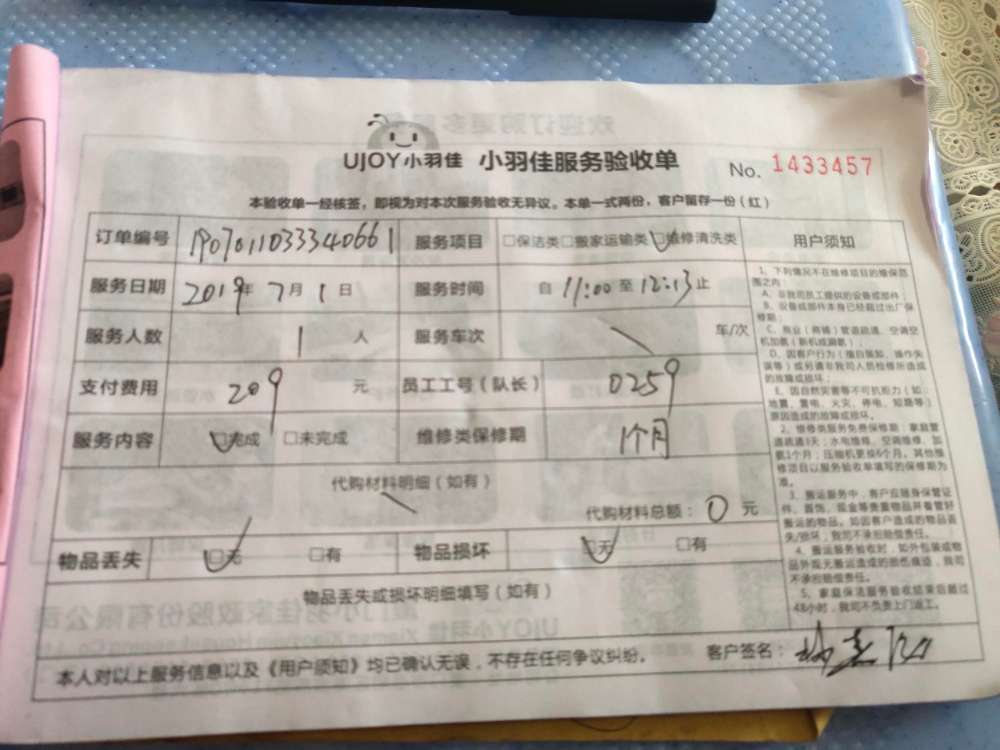 UJOY小羽佳 小羽佳服务验收单 No. 1433457
本验收单一经核签，即视为对本次服务验收无异议。本单一式两份，客户留存一份（红）
订单编号 190701103334066 1 服务项目 □保洁类□搬家运输类□维修清洗类 用户须知
服务日期 2019年7月1日 服务时间 自 11:00 至 12:13 止
服务人数 1 人 服务车次 车/次
支付费用 209 元 员工工号（队长） 0259
服务内容 □完成 □未完成 维修类保修期 1个月
代购材料明细（如有）
代购材料总额：0 元
物品丢失 □无 □有 物品损坏 □无 □有
物品丢失或损坏明细填写（如有）
1、下列情况不在维修项目的维保范
围之内：
A、非我司员工提供的设备或部件；
B、设备或部件本身已经超过出厂保
修期；
C、商业（商铺）管道疏通、空调空
机加氨（新机或漏氨）；
D、因客户行为（擅自拆卸、操作失
误等）或另请非我司人员检修所造成
的故障或损坏；
E、因自然灾害等不可抗拒力（如：
地震、雷电、火灾、停电、短路等）
原因造成的故障或损坏。
2、维修类服务免费保修期：家庭管
道疏通3天；水电维修、空调维修、加
氨1个月；压缩机更换6个月。其他维
修项目以服务验收单填写的保修期为
准。
3、搬运服务中，客户应随身保管证
件、首饰、现金等贵重物品并看管好
搬运的物品。如因客户造成的物品丢
失/损坏，我司不承担赔偿责任。
4、搬运服务验收时，如外包装或物
品外观无搬运造成的损伤痕迹，我司
不承担赔偿责任。
5、家庭保洁服务验收结束后超过
48小时，我司不负责上门返工。
本人对以上服务信息以及《用户须知》均已确认无误，不存在任何争议纠纷。 客户签名：